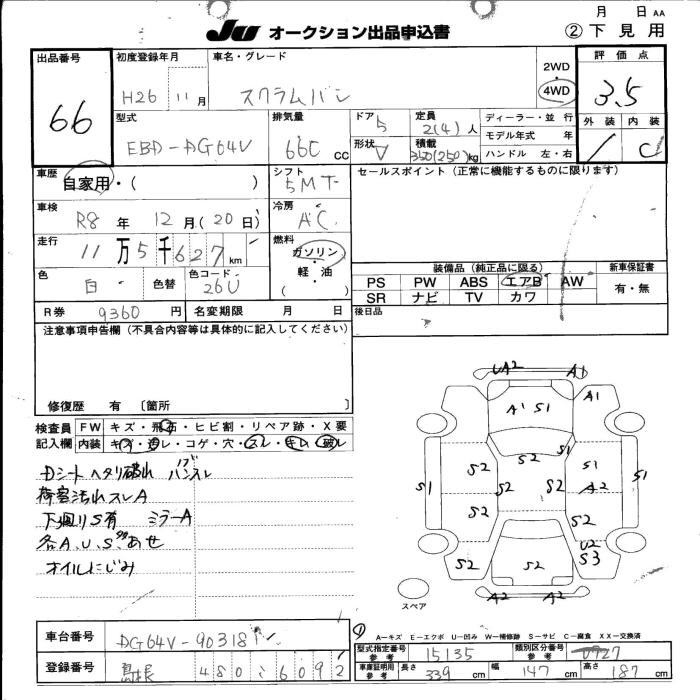 JU オークション出品申込書
月 日 AA
② 下見用
出品番号 66
初度登録年月 H26年 11月
車名・グレード スクラムバン
2WD・4WD
評価点 3.5
外装 内装 C
型式 EBD-DG64V
排気量 660 cc
ドア 5
形状 V
定員 2(4)人
積載 350(250)kg
ディーラー・並行
モデル年式 年
ハンドル 左・右
車歴 自家用・( )
シフト 5MT
セールスポイント(正常に機能するものに限ります)
車検 R8年 12月(20日)
冷房 AC
走行 11万5千627km
燃料 ガソリン・軽油 ( )
色 白 色替 色コード 26U
装備品(純正品に限る) 新車保証書
PS PW ABS エアB AW 有・無
SR ナビ TV カワ
R券 9360円 名変期限 月 日
後日品
注意事項申告欄(不具合内容等は具体的に記入してください)
修復歴 有 〔箇所 〕
検査員記入欄
FW キズ・飛石・ヒビ割・リペア跡・X要
内装 キズ・汚レ・コゲ・穴・スレ・キレ・破レ
Dシートヘタリ破れ ハンスレ
荷室汚れスレA
下廻りS有 ミラーA
各A、U、Sサビあせ
オイルにじみ
UA2 A1
A1 S1 A1
S1 S2 S2 S1 S1 S1
S2 S2 A2
S2 S2
S2 S2 U2 S3
A2 A2
スペア
A-キズ E-エクボ U-凹み W-補修跡 S-サビ C-腐食 XX-交換済
車台番号 DG64V-90318
登録番号 島根 480 い 6092
型式指定番号 参考 15135
類別区分番号 参考 0727
車庫証明用 参考 長さ 339cm 幅 147cm 高さ 187cm